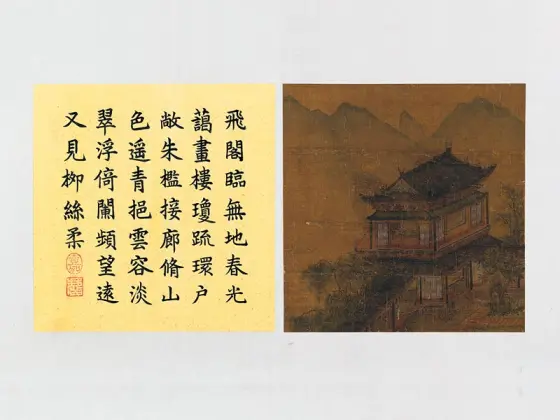 飛閣臨無地春光
藹畫樓瓊疏環户
敞朱檻接廊脩山
色遙青挹雲容淡
翠浮倚闌頻望遠
又見栁絲柔